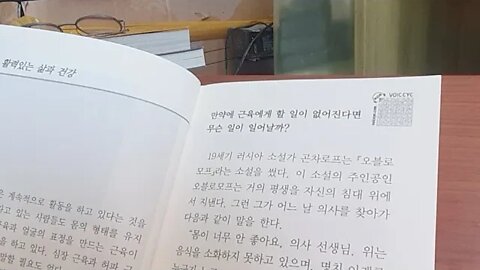 활력있는 삶과 건강
계속적으로 활동을 하고 있다는 것을
하고 있는 사람들도 몸의 형태를 유지
육과 얼굴의 표정을 만드는 근육이
하고 있다. 심장 근육과 허파 근
만약에 근육에게 할 일이 없어진다면
무슨 일이 일어날까?
VOICEYE
19세기 러시아 소설가 곤차로프는 「오블로
모프」라는 소설을 썼다. 이 소설의 주인공인
오블로모프는 거의 평생을 자신의 침대 위에
서 지낸다. 그런 그가 어느 날 의사를 찾아가
다음과 같이 말을 한다.
"몸이 너무 안 좋아요, 의사 선생님. 위는
음식을 소화하지 못하고 있으며, 명치 이께를